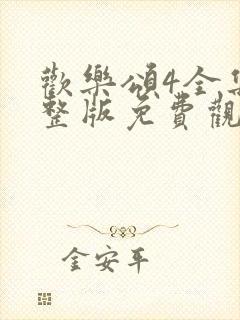 歡樂頌4全集
整版免費觀
金安平